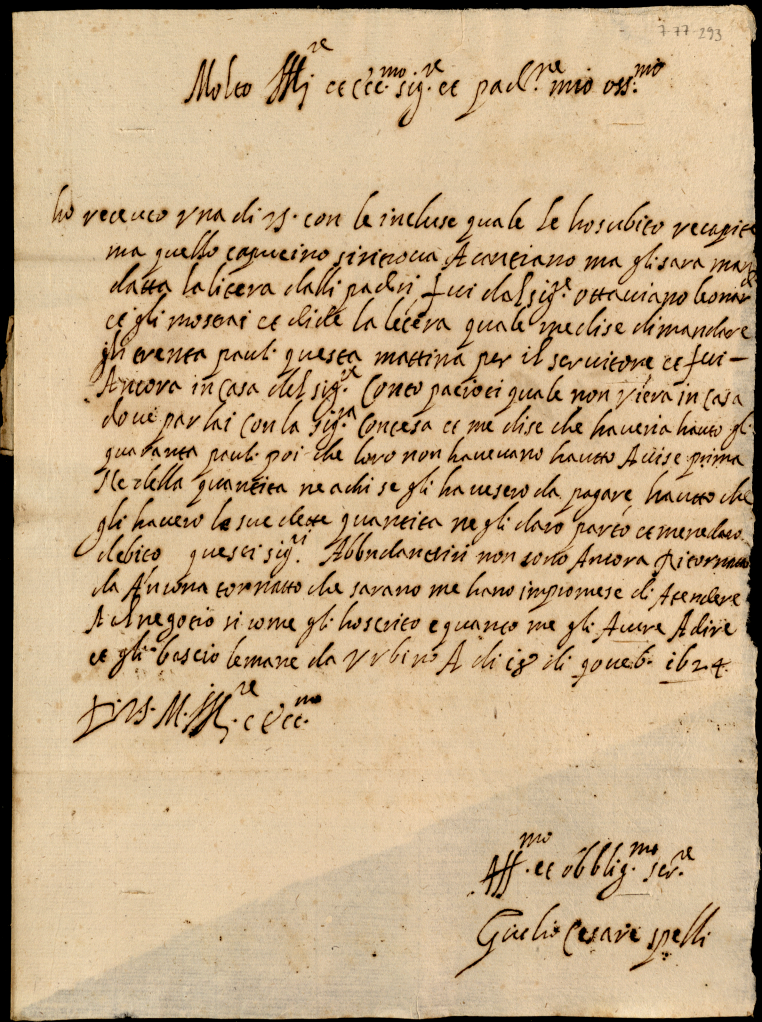 7 77 293
Molto Ill.re et ecc.mo sig.re et pad.ne mio oss.mo
ho receuto una di VS. con le incluse quale le ho subito recapite
ma quello capucino si ritrova A cantiano ma gli sara man
datta la litera dalli padri fui dal sig.re ottaviano leonar
et gli mostrai et diede la letera quale me dise di mandare
gli trenta paul. questa mattina per il servitore et fui
Ancora in casa del sig.re Conto pacioti quale non viera in casa
dove parlai con la sig.ra Contesa et me dise che haveria hauto gl.
quaranta paul. poi che loro non havevano hautto Avise prima
ne della quantita ne a chi se gli havesero da pagare hautto che
gli havero le sue dette quantita ne gli daro parto et me ne daro
debito questi sig.ri Abbundantiri non sono Ancora ritornati
da Ancona tornatto che sarano me hano impromese di Atendere
A il negotio si come gli ho scrito e quanto me gli Avere A dire
et gli bascio le mane da Urbino A di 18 di 9oveb. 1624.
Di VS. M. Ill.re e ecc.mo
Aff.mo et obblig.mo ser.re
Giulio Cesare spelli